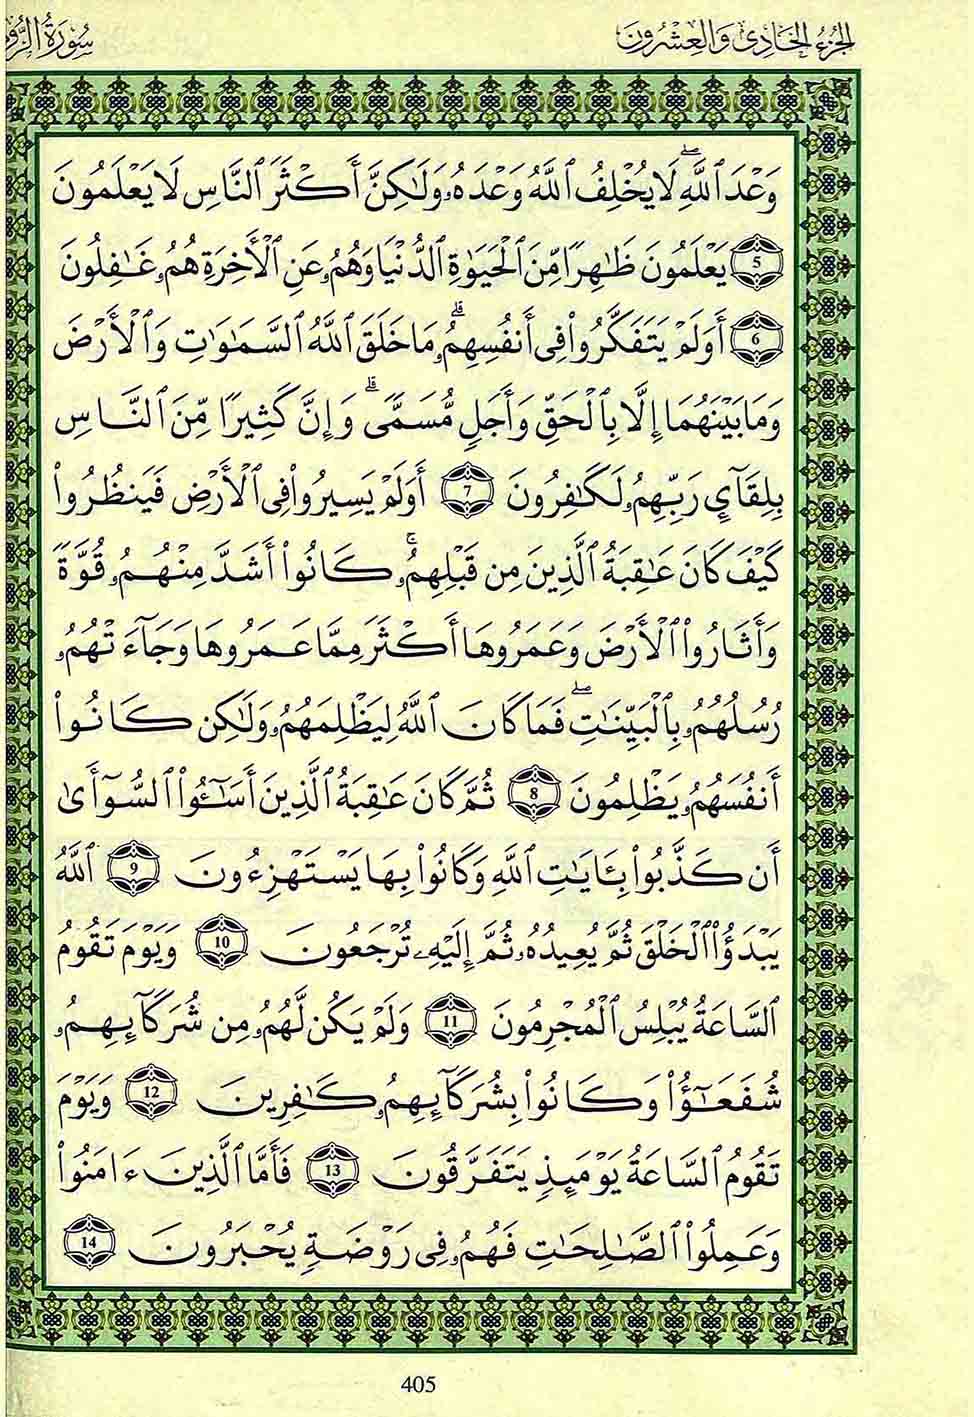 الجزء الحادي والعشرون
سورة الرو
وَعْدَ ٱللَّهِۖ لَا يُخْلِفُ ٱللَّهُ وَعْدَهُۥ وَلَٰكِنَّ أَكْثَرَ ٱلنَّاسِ لَا يَعْلَمُونَ
5 يَعْلَمُونَ ظَٰهِرًا مِّنَ ٱلْحَيَوٰةِ ٱلدُّنْيَا وَهُمُۥ عَنِ ٱلْأَخِرَةِ هُمُۥ غَٰفِلُونَ
6 أَوَلَمْ يَتَفَكَّرُواْ فِى أَنفُسِهِمُۥۗ مَا خَلَقَ ٱللَّهُ ٱلسَّمَٰوَٰتِ وَٱلْأَرْضَ
وَمَا بَيْنَهُمَا إِلَّا بِٱلْحَقِّ وَأَجَلٍ مُّسَمًّىۗ وَإِنَّ كَثِيرًا مِّنَ ٱلنَّاسِ
بِلِقَآيِٕ رَبِّهِمُۥ لَكَٰفِرُونَ 7 أَوَلَمْ يَسِيرُواْ فِى ٱلْأَرْضِ فَيَنظُرُواْ
كَيْفَ كَانَ عَٰقِبَةُ ٱلَّذِينَ مِن قَبْلِهِمُۥۚ كَانُوٓاْ أَشَدَّ مِنْهُمُۥ قُوَّةً
وَأَثَارُواْ ٱلْأَرْضَ وَعَمَرُوهَا أَكْثَرَ مِمَّا عَمَرُوهَا وَجَآءَتْهُمُۥ
رُسُلُهُمُۥ بِٱلْبَيِّنَٰتِۖ فَمَا كَانَ ٱللَّهُ لِيَظْلِمَهُمُۥ وَلَٰكِن كَانُواْ
أَنفُسَهُمُۥ يَظْلِمُونَ 8 ثُمَّ كَانَ عَٰقِبَةُ ٱلَّذِينَ أَسَٰٓـُٔواْ ٱلسُّوٓأَىٰ
أَن كَذَّبُواْ بِـَٔايَٰتِ ٱللَّهِ وَكَانُواْ بِهَا يَسْتَهْزِءُونَ 9 ٱللَّهُ
يَبْدَؤُاْ ٱلْخَلْقَ ثُمَّ يُعِيدُهُۥ ثُمَّ إِلَيْهِۦ تُرْجَعُونَ 10 وَيَوْمَ تَقُومُ
ٱلسَّاعَةُ يُبْلِسُ ٱلْمُجْرِمُونَ 11 وَلَمْ يَكُن لَّهُمُۥ مِن شُرَكَآئِهِمُۥ
شُفَعَٰٓؤُاْ وَكَانُواْ بِشُرَكَآئِهِمُۥ كَٰفِرِينَ 12 وَيَوْمَ
تَقُومُ ٱلسَّاعَةُ يَوْمَئِذٍ يَتَفَرَّقُونَ 13 فَأَمَّا ٱلَّذِينَ ءَامَنُواْ
وَعَمِلُواْ ٱلصَّٰلِحَٰتِ فَهُمُۥ فِى رَوْضَةٍ يُحْبَرُونَ 14
405